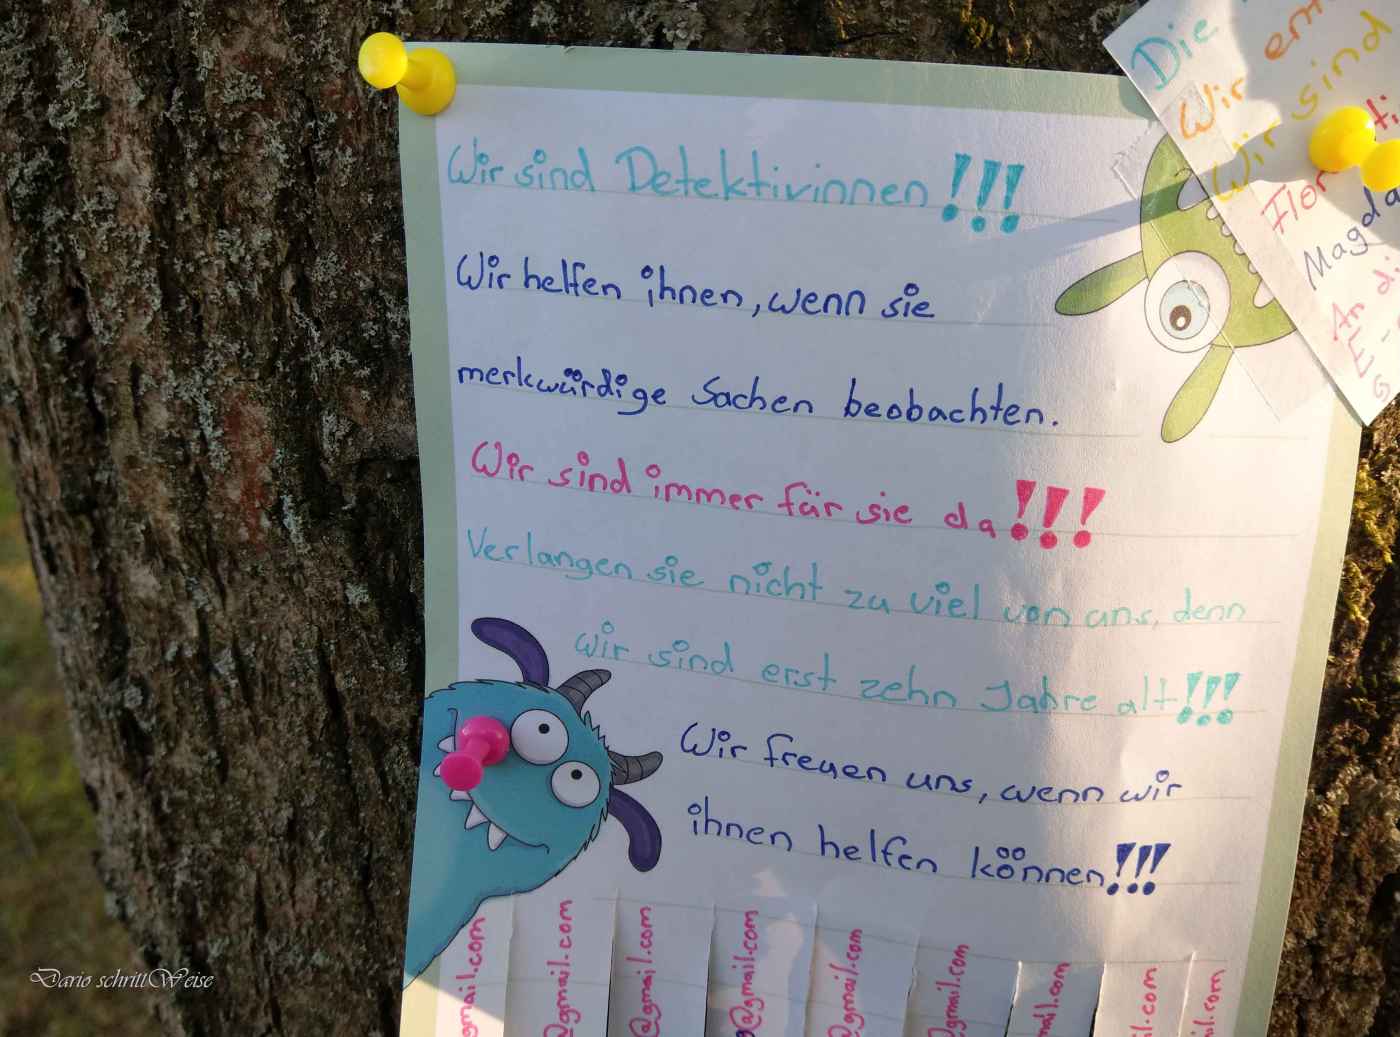 Wir sind Detektivinnen!!!
Wir helfen ihnen, wenn sie
merkwürdige Sachen beobachten.
Wir sind immer für sie da!!!
Verlangen sie nicht zu viel von uns, denn
wir sind erst zehn Jahre alt!!!
Wir freuen uns, wenn wir
ihnen helfen können!!!
gmail.com
@gmail.com
@gmail.com
@gmail.com
@gmail.com
@gmail.com
mail.com
il.com
il.com
Die
Wir
Wir sind
Magda
An di
Dario schrittWeise